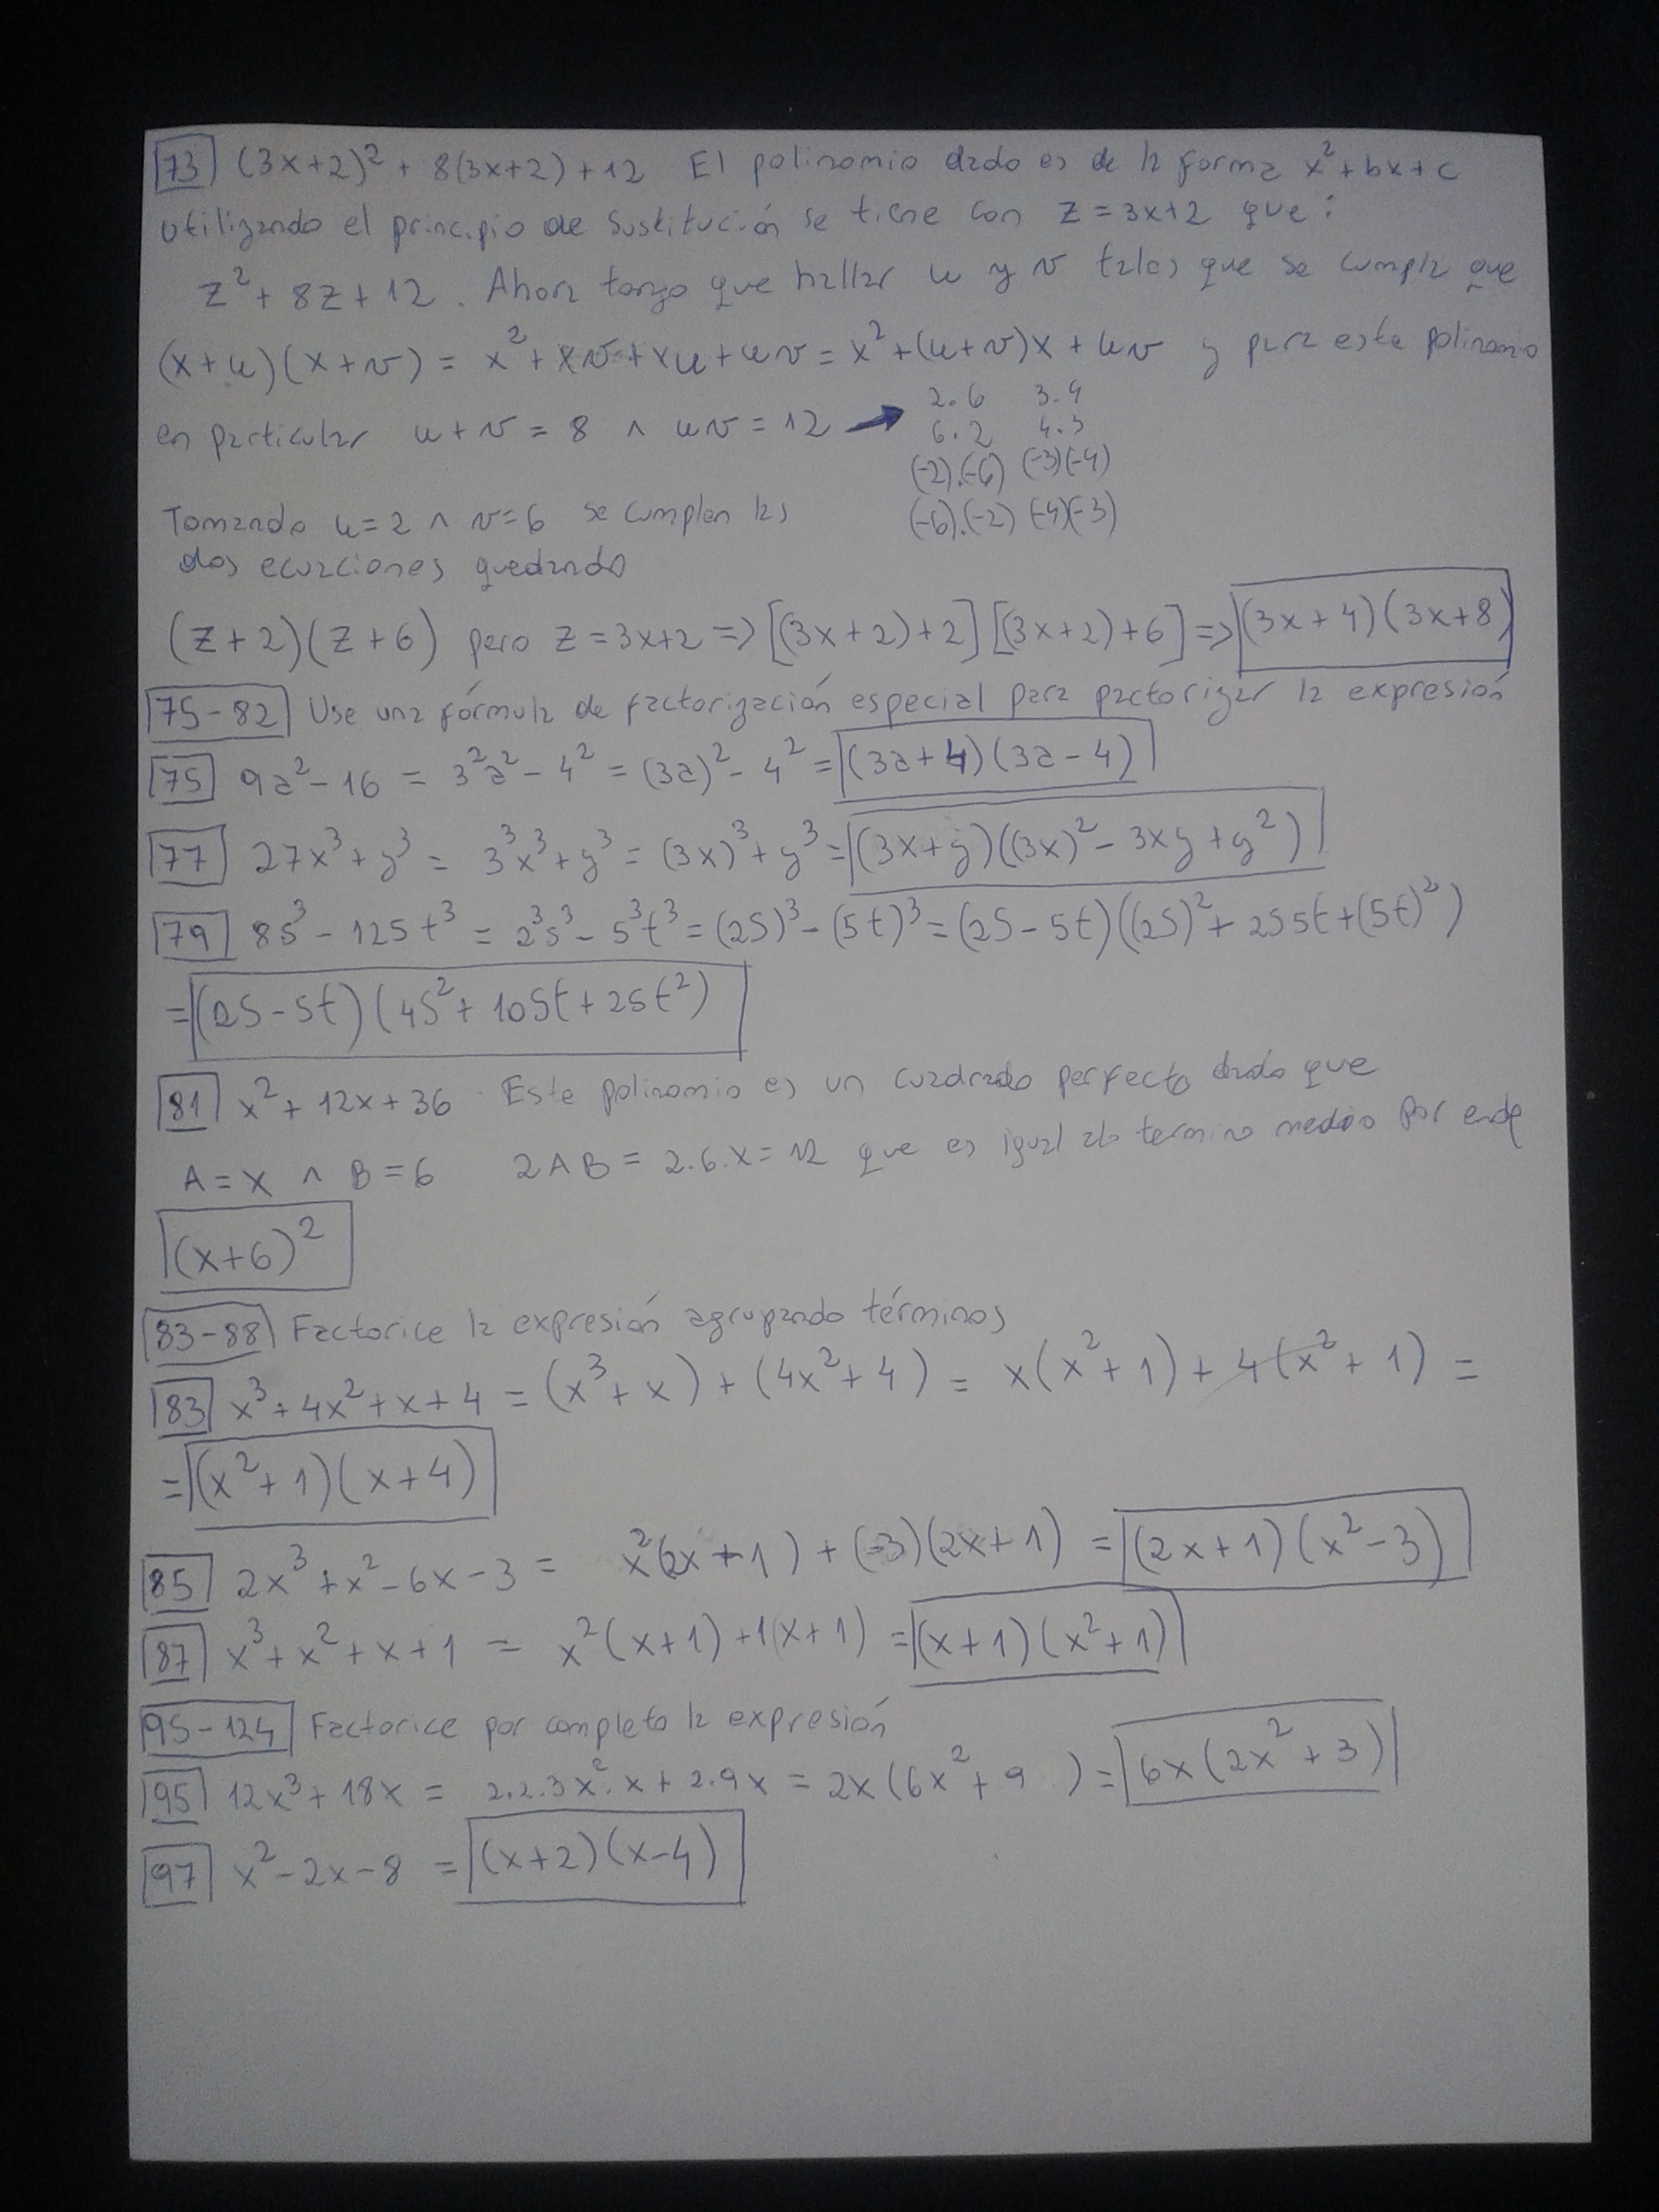 73 (3x+2)² + 8(3x+2)+12 El polinomio dado es de la forma x²+bx+c
utilizando el principio de sustitución se tiene con z=3x+2 que:
z²+8z+12. Ahora tengo que hallar u y v tales que se cumpla que
(x+u)(x+v) = x²+xv+xu+uv = x²+(u+v)x+uv y para este polinomio
2.6 3.4
en particular u+v=8 ∧ uv=12 → 6.2 4.3
(-2).(-6) (-3)(-4)
Tomando u=2 ∧ v=6 se cumplen las (-6).(-2) (-4)(-3)
dos ecuaciones quedando
(z+2)(z+6) pero z=3x+2 => [(3x+2)+2][(3x+2)+6] => (3x+4)(3x+8)
75-82 Use una fórmula de factorización especial para factorizar la expresión
75 9a²-16 = 3²a²-4² = (3a)²-4² = (3a+4)(3a-4)
77 27x³+y³ = 3³x³+y³ = (3x)³+y³ = (3x+y)((3x)²-3xy+y²)
79 8s³-125t³ = 2³s³-5³t³ = (2s)³-(5t)³ = (2s-5t)((2s)²+2s5t+(5t)²)
= (2s-5t)(4s²+10st+25t²)
81 x²+12x+36 . Este polinomio es un cuadrado perfecto dado que
A=x ∧ B=6 2AB=2.6.x=12 que es igual al termino medio por ende
(x+6)²
83-88 Factorice la expresión agrupando términos
83 x³+4x²+x+4 = (x³+x)+(4x²+4) = x(x²+1)+4(x²+1) =
= (x²+1)(x+4)
85 2x³+x²-6x-3 = x²(2x+1)+(-3)(2x+1) = (2x+1)(x²-3)
87 x³+x²+x+1 = x²(x+1)+1(x+1) = (x+1)(x²+1)
95-124 Factorice por completo la expresión
95 12x³+18x = 2.2.3x².x+2.9x = 2x(6x²+9 ) = 6x(2x²+3)
97 x²-2x-8 = (x+2)(x-4)